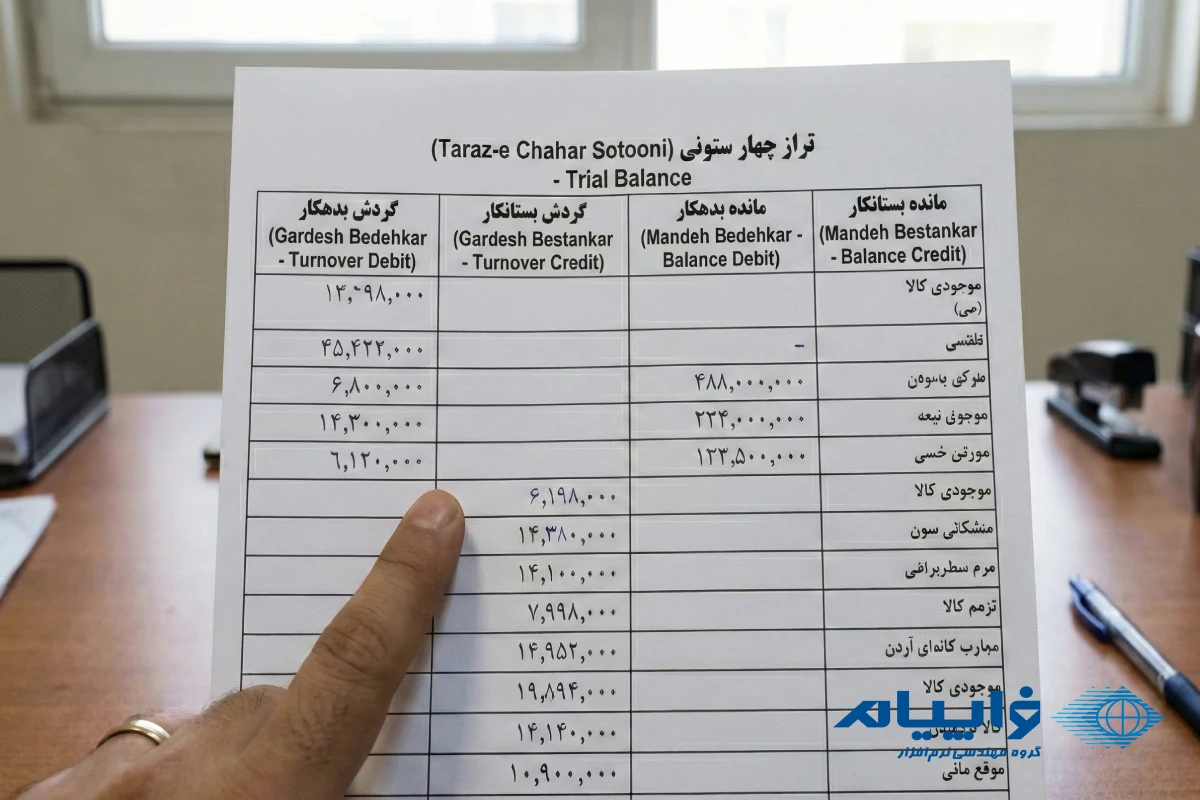 تراز چهار ستونی (Taraz-e Chahar Sotooni)
- Trial Balance
مانده بستانکار
(Mandeh Bestankar
- Balance Credit)
مانده بدهکار
(Mandeh Bedehkar -
Balance Debit)
گردش بستانکار
(Gardesh Bestankar
- Turnover Credit)
گردش بدهکار
(Gardesh Bedehkar
- Turnover Debit)
موجودی کالا
۴۵,۴۲۲,۰۰۰ –
۴۸۸,۰۰۰,۰۰۰ ۶,۸۰۰,۰۰۰
۲۲۴,۰۰۰,۰۰۰ ۱۴,۳۰۰,۰۰۰
۱۲۳,۵۰۰,۰۰۰ ۶,۱۲۰,۰۰۰
موجودی کالا ۶,۱۹۸,۰۰۰
سون ۱۴,۳۸۰,۰۰۰
مرم ۱۴,۱۰۰,۰۰۰
تزمم کالا ۷,۹۹۸,۰۰۰
آردن ۱۴,۹۵۲,۰۰۰
موجودی کالا ۱۹,۸۹۴,۰۰۰
کالا ۱۴,۱۴۰,۰۰۰
موقع مانی ۱۰,۹۰۰,۰۰۰
فراپیام
گروه مهندسی نرم‌افزار